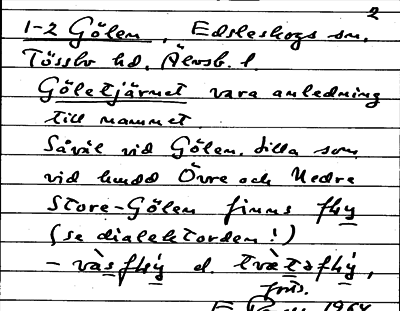 2
1-2 Gölen, Edsleskogs sn.
Tössbo hd, Älvsb. l.
Göletjärnet vara anledning
till namnet
Såväl vid Gölen. Lilla som
vid hmdd Övre och Nedre
Store-Gölen finns fly
(se dialektorden!)
- vàsflý d. tvätəflý,
1964